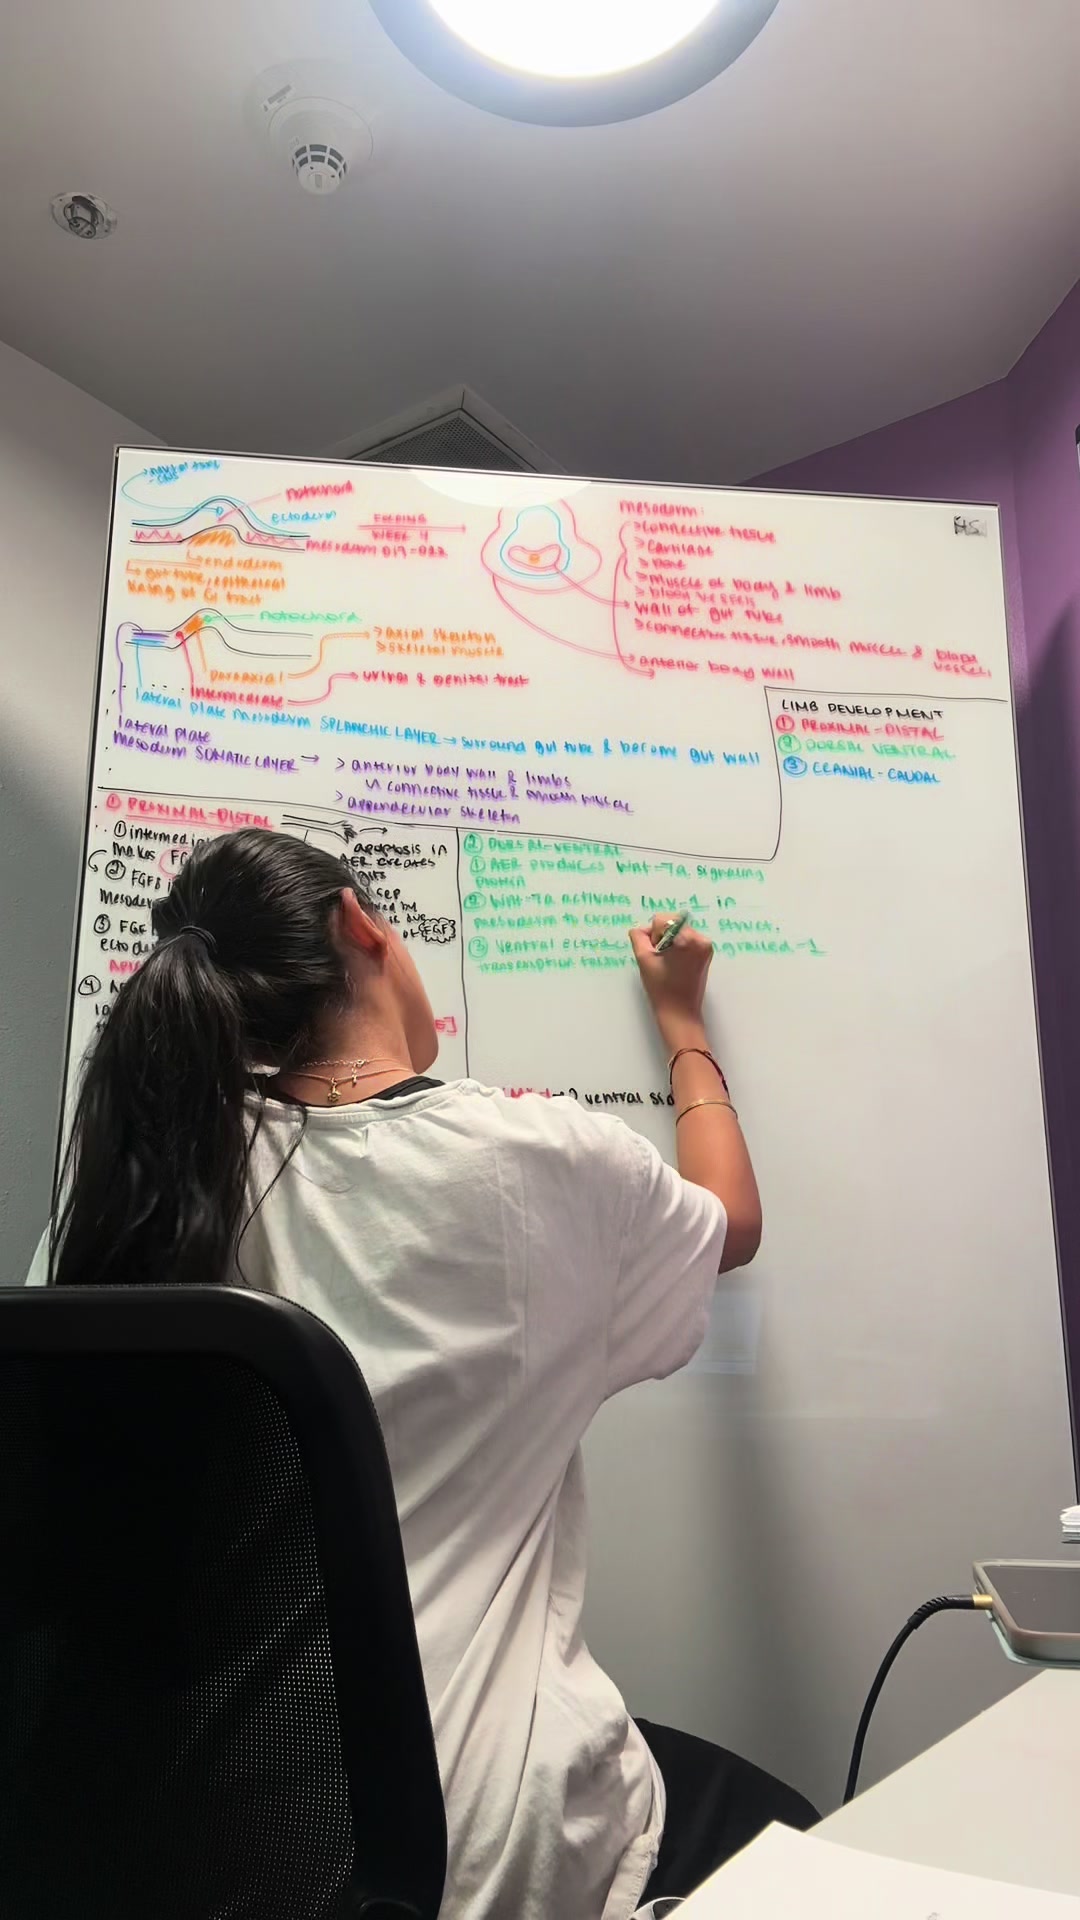 neural tube
- CNS
notochord
ectoderm
mesoderm D17-D22
endoderm
gut tube, epithelial
lining of GI tract
FOLDING
WEEK 4
mesoderm:
> connective tissue
> cartilage
> bone
> muscle of body & limb
> blood vessels
wall of gut tube
> connective tissue, smooth muscle & blood
vessels
anterior body wall
HS
notochord
> axial skeleton
> skeletal muscle
paraxial
intermediate
urinal & genital tract
lateral plate mesoderm SPLANCHNIC LAYER → surround gut tube & become gut wall
lateral plate
mesoderm SOMATIC LAYER → > anterior body wall & limbs
connective tissue & smooth muscle
> appendecular skeleton
LIMB DEVELOPMENT
① PROXIMAL-DISTAL
② DORSAL VENTRAL
③ CRANIAL-CAUDAL
① PROXIMAL-DISTAL
① intermedi
makes FG
② FGF8 i
mesoder
③ FGF
ectod
④ A
apoptosis in
AER creates
by
of FGF
② DORSAL-VENTRAL
① AER produces Wnt-7a signaling
protein
② Wnt-7a activates LMX-1 in
mesoderm to create al struct.
③ ventral ectod ngrailed-1
transcription factor
ventral sid